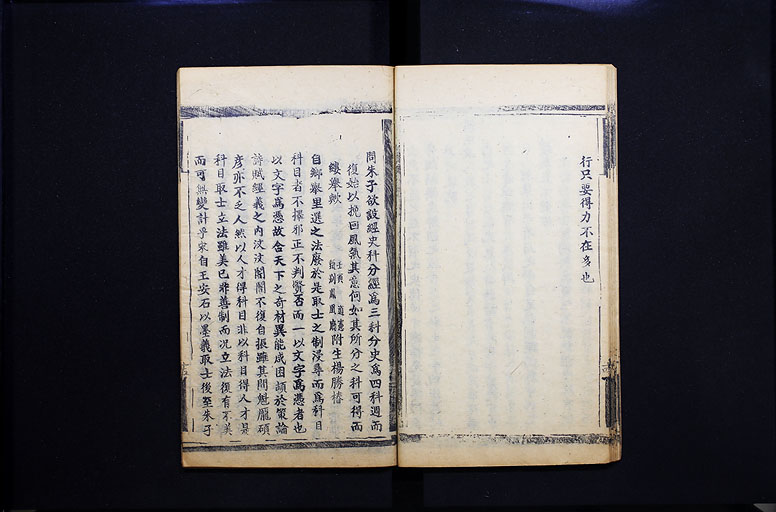 行只要得力不在多也
問朱子欲設經史科分經爲三科分史爲四科週而
復始以挽回風氣其意何如其所分之科可得而
縷舉歟
附生楊勝椿
自鄉舉里選之法廢於是取士之制浸尋而爲科目
科目者不擇邪正不判賢否而一以文字爲憑者也
以文字爲憑故合天下之奇材異能咸困頓於策論
詩賦經義之內汶汶闇闇不復自振雖其間魁龐碩
彥亦不乏人然以人才得科目非以科目得人才是
科目取士立法雖美已非善制而况立法復有不美
而可無變計乎宋自王安石以墨義取士後至朱子